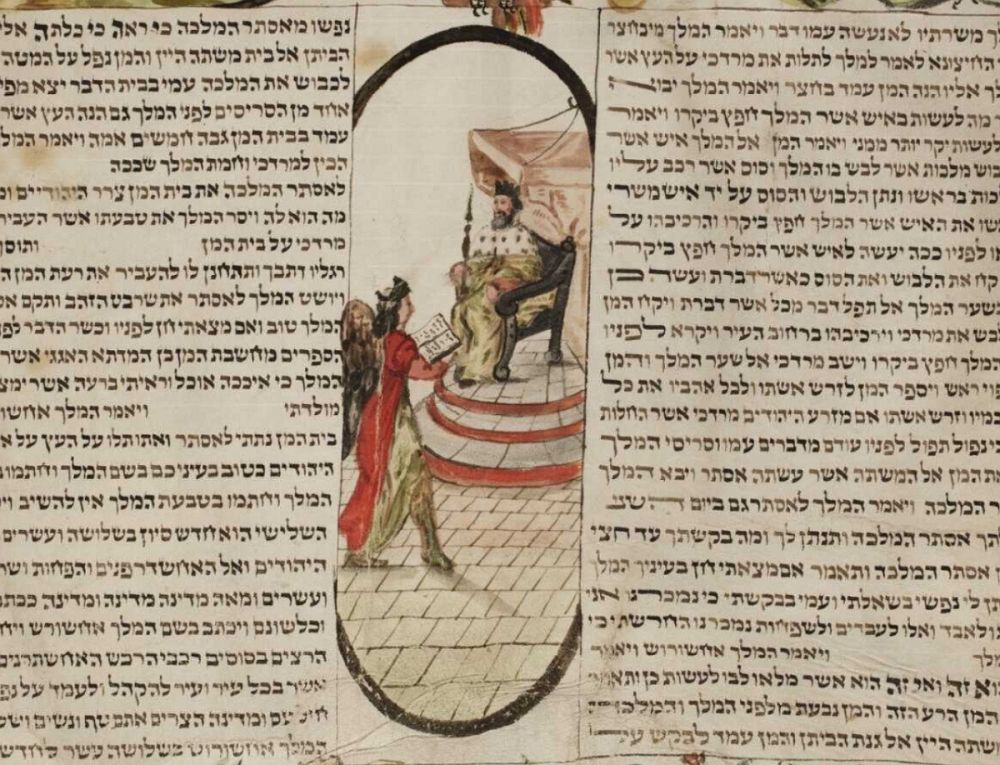 ך משרתיו לא נעשה עמו דבר ויאמר המלך מי בחצר
החיצונא לאמר למלך לתלות את מרדכי על העץ אשר
אליו הנה המן עמד בחצר ויאמר המלך יבוא
מה לעשות באיש אשר המלך חפץ ביקרו ויאמר
לעשות יקר יותר ממני ויאמר המן אל המלך איש אשר
בוש מלכות אשר לבש בו המלך וסוס אשר רכב עליו
כות בראשו ונתן הלבוש והסוס על יד איש משרי
שו את האיש אשר המלך חפץ ביקרו והרכיבהו על
או לפניו ככה יעשה לאיש אשר המלך חפץ ביקרו
קח את הלבוש ואת הסוס כאשר דברת ועשה כן
בשער המלך אל תפל דבר מכל אשר דברת ויקח המן
בש את מרדכי וירכיבהו ברחוב העיר ויקרא לפניו
המלך חפץ ביקרו וישב מרדכי אל שער המלך והמן
וי ראש ויספר המן לזרש אשתו ולכל אהביו את כל
כמיו וזרש אשתו אם מזרע היהודים מרדכי אשר החלות
כי נפול תפול לפניו עודם מדברים עמו וסריסי המלך
את המן אל המשתה אשר עשתה אסתר ויבא המלך
ר המלכה ויאמר המלך לאסתר גם ביום השני
תך אסתר המלכה ותנתן לך ומה בקשתך עד חצי
ן אסתר המלכה ותאמר אם מצאתי חן בעיניך המלך
תן לי נפשי בשאלתי ועמי בבקשתי כי נמכרנו אני
ולאבד ואלו לעבדים ולשפחות נמכרנו החרשתי כי
המלך ויאמר המלך אחשורוש ויאמר
הוא זה ואי זה הוא אשר מלאו לבו לעשות כן ותאמר
המן הרע הזה והמן נבעת מלפני המלך והמלכה
משתה היין אל גנת הביתן והמן עמד לבקש על
נפשו מאסתר המלכה כי ראה כי כלתה אליו
הביתן אל בית משתה היין והמן נפל על המטה
לכבוש את המלכה עמי בבית הדבר יצא מפי
אחד מן הסריסים לפני המלך גם הנה העץ אשר
עמד בבית המן גבה חמשים אמה ויאמר המלך
הכין למרדכי וחמת המלך שככה
לאסתר המלכה את בית המן צרר היהודיים ומ
מה הוא לה ויסר המלך את טבעתו אשר העביר
מרדכי על בית המן ותוסף
רגליו ותבך ותתחנן לו להעביר את רעת המן ה
ויושט המלך לאסתר את שרבט הזהב ותקם אס
המלך טוב ואם מצאתי חן לפניו וכשר הדבר לפני
הספרים מחשבת המן בן המדתא האגגי אשר
המלך כי איככה אוכל וראיתי ברעה אשר ימצא
מולדתי ויאמר המלך אחשו
בית המן נתתי לאסתר ואתו תלו על העץ על א
היהודים כטוב בעיניכם בשם המלך וחתמו
המלך ונחתום בטבעת המלך אין להשיב וי
השלישי הוא חדש סיון בשלושה ועשרים
היהודים ואל האחשדרפנים והפחות ושר
ועשרים ומאה מדינה מדינה ומדינה ככתב
וכלשונם ויכתב בשם המלך אחשורש ויח
הרצים בסוסים רכבי הרכש האחשתרנים
אשר בכל עיר ועיר להקהל ולעמד על נפ
חיל עם ומדינה הצרים אתם טף ונשים ושל
המלך אחשורוש בשלושה עשר לחדש